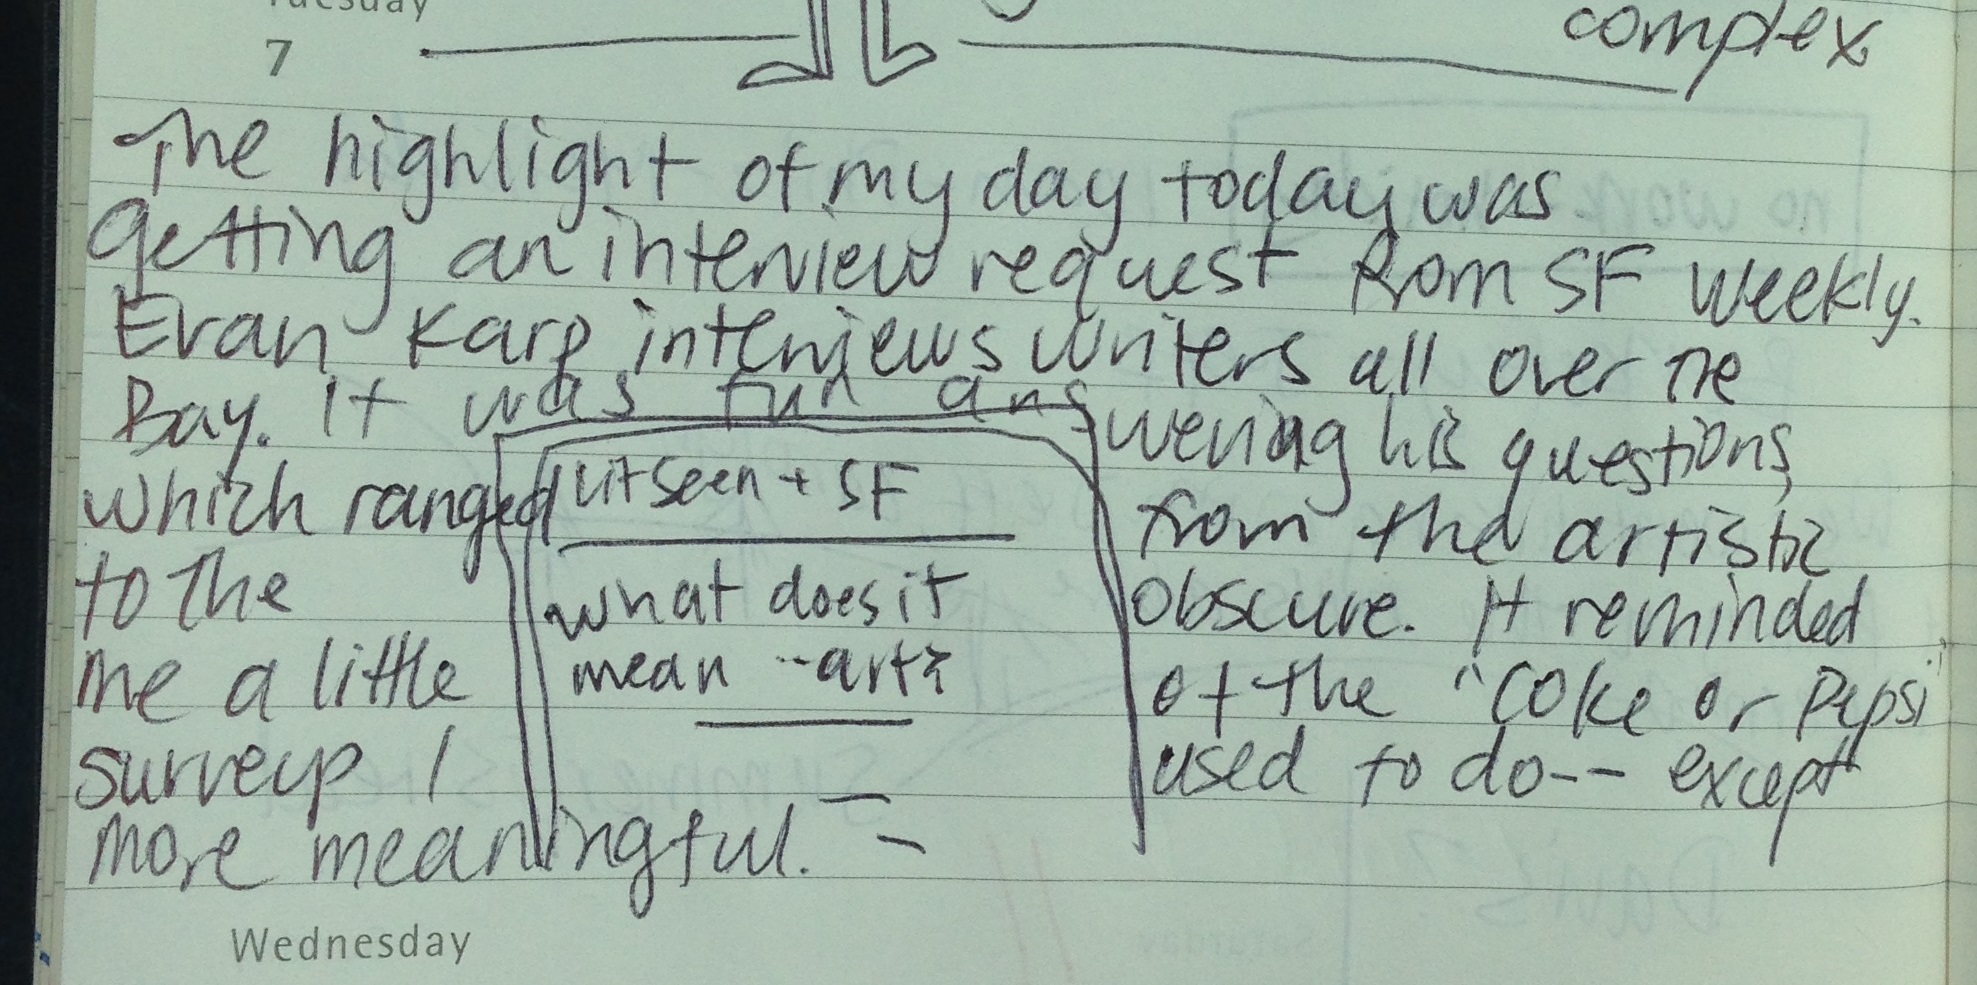 Tuesday
7
complex
The highlight of my day today was
getting an interview request from SF Weekly.
Evan Karp interviews writers all over the
Bay. It was fun answering his questions,
which ranged from the artistic
to the obscure. It reminded
me a little of the "Coke or Pepsi"
surveys I used to do -- except
more meaningful.
Litseen + SF
what does it
mean -- art?
Wednesday